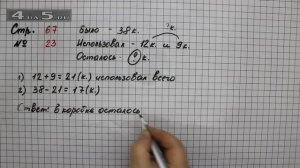 4×5.RU
? к.
Стр. 67 Было - 38 к.
№ 23 Использовал - 12 к. и 9 к.
Осталось - ? к.
1) 12 + 9 = 21 (к.) использовал всего
2) 38 - 21 = 17 (к.)
Ответ: в коробке осталось